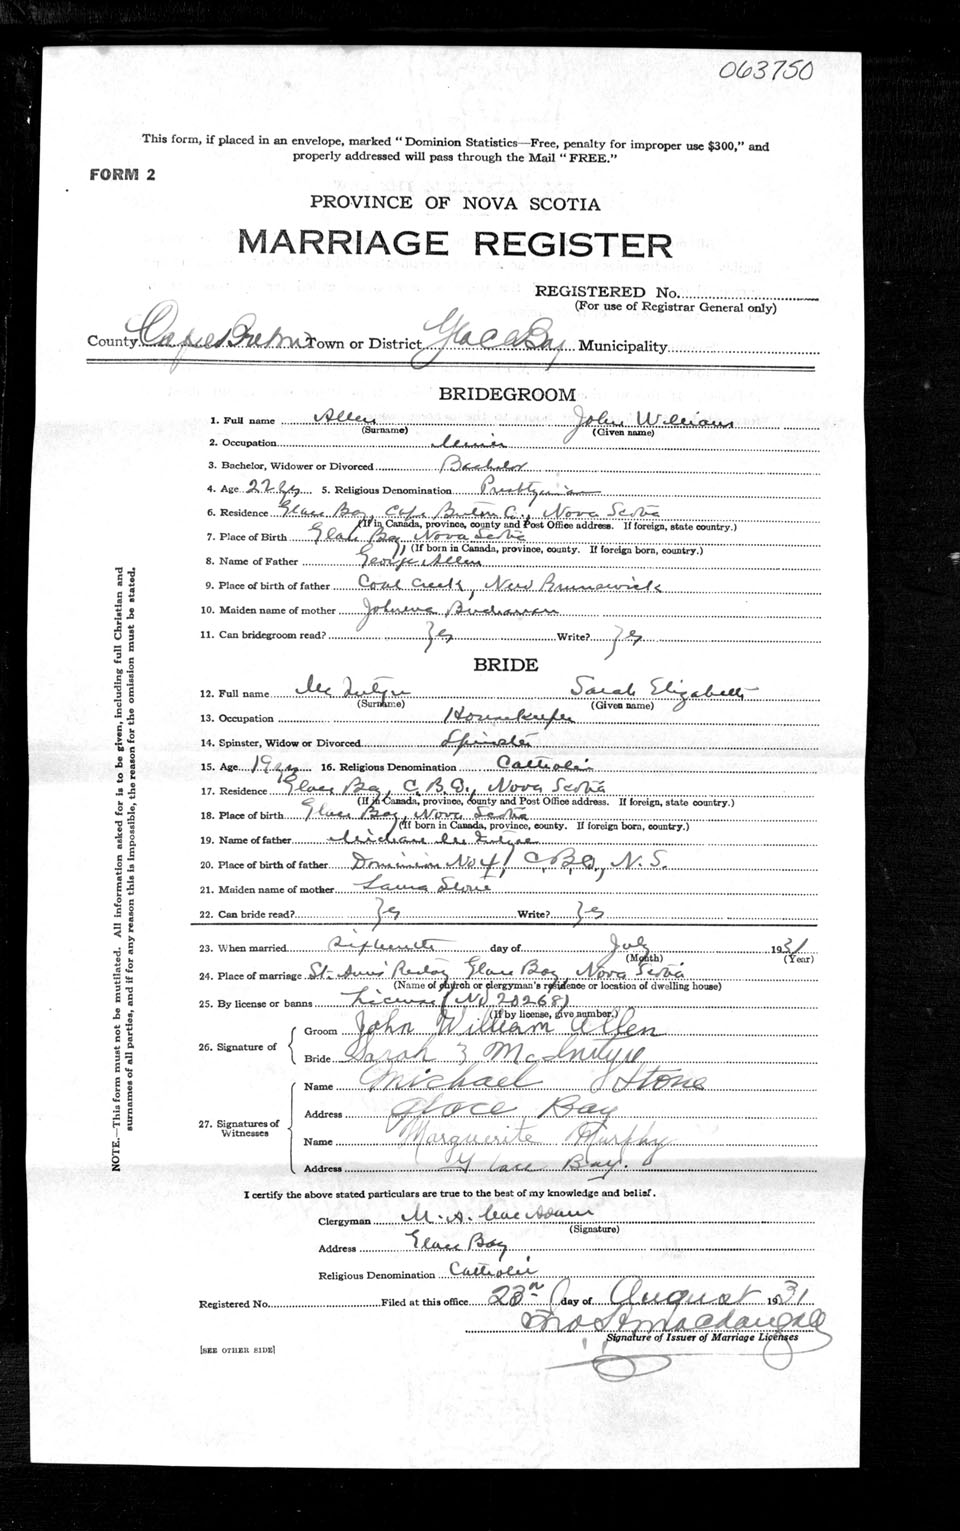 063750
This form, if placed in an envelope, marked "Dominion Statistics—Free, penalty for improper use $300," and
properly addressed will pass through the Mail "FREE."
FORM 2
PROVINCE OF NOVA SCOTIA
MARRIAGE REGISTER
REGISTERED No.
(For use of Registrar General only)
County Cape Breton Town or District Glace Bay Municipality
BRIDEGROOM
1. Full name Allen John William
(Surname) (Given name)
2. Occupation Miner
3. Bachelor, Widower or Divorced Bachelor
4. Age 22 yrs 5. Religious Denomination Presbyterian
6. Residence Glace Bay, Cape Breton Co., Nova Scotia
(If in Canada, province, county and Post Office address. If foreign, state country.)
7. Place of Birth Glace Bay Nova Scotia
(If born in Canada, province, county. If foreign born, country.)
8. Name of Father George Allen
9. Place of birth of father Coal Creek, New Brunswick
10. Maiden name of mother Buchanan
11. Can bridegroom read? Yes Write? Yes
BRIDE
12. Full name McIntyre Sarah Elizabeth
(Surname) (Given name)
13. Occupation Housekeeper
14. Spinster, Widow or Divorced Spinster
15. Age 19 yrs 16. Religious Denomination Catholic
17. Residence Glace Bay, C.B.Co., Nova Scotia
(If in Canada, province, county and Post Office address. If foreign, state country.)
18. Place of birth Glace Bay, Nova Scotia
(If born in Canada, province, county. If foreign born, country.)
19. Name of father Michael McIntyre
20. Place of birth of father Dominion No 4, C.B.Co., N.S.
21. Maiden name of mother Laura Stone
22. Can bride read? Yes Write? Yes
23. When married Sixteenth day of July 1931
(Month) (Year)
24. Place of marriage St. Anns' Rectory Glace Bay, Nova Scotia
(Name of church or clergyman's residence or location of dwelling house)
25. By license or banns License (No 20268)
(If by license, give number.)
26. Signature of Groom John William Allen
Bride Sarah E McIntyre
27. Signatures of Witnesses Name Michael Stone
Address Glace Bay
Name Marguerite Murphy
Address Glace Bay.
I certify the above stated particulars are true to the best of my knowledge and belief.
Clergyman M. A. MacAdam
(Signature)
Address Glace Bay
Religious Denomination Catholic
Registered No. Filed at this office 23rd day of August 1931
Macdougall
Signature of Issuer of Marriage Licenses
[SEE OTHER SIDE]
NOTE.—This form must not be mutilated. All Information asked for is to be given, including full Christian and
surnames of all parties, and if for any reason this is impossible, the reason for the omission must be stated.